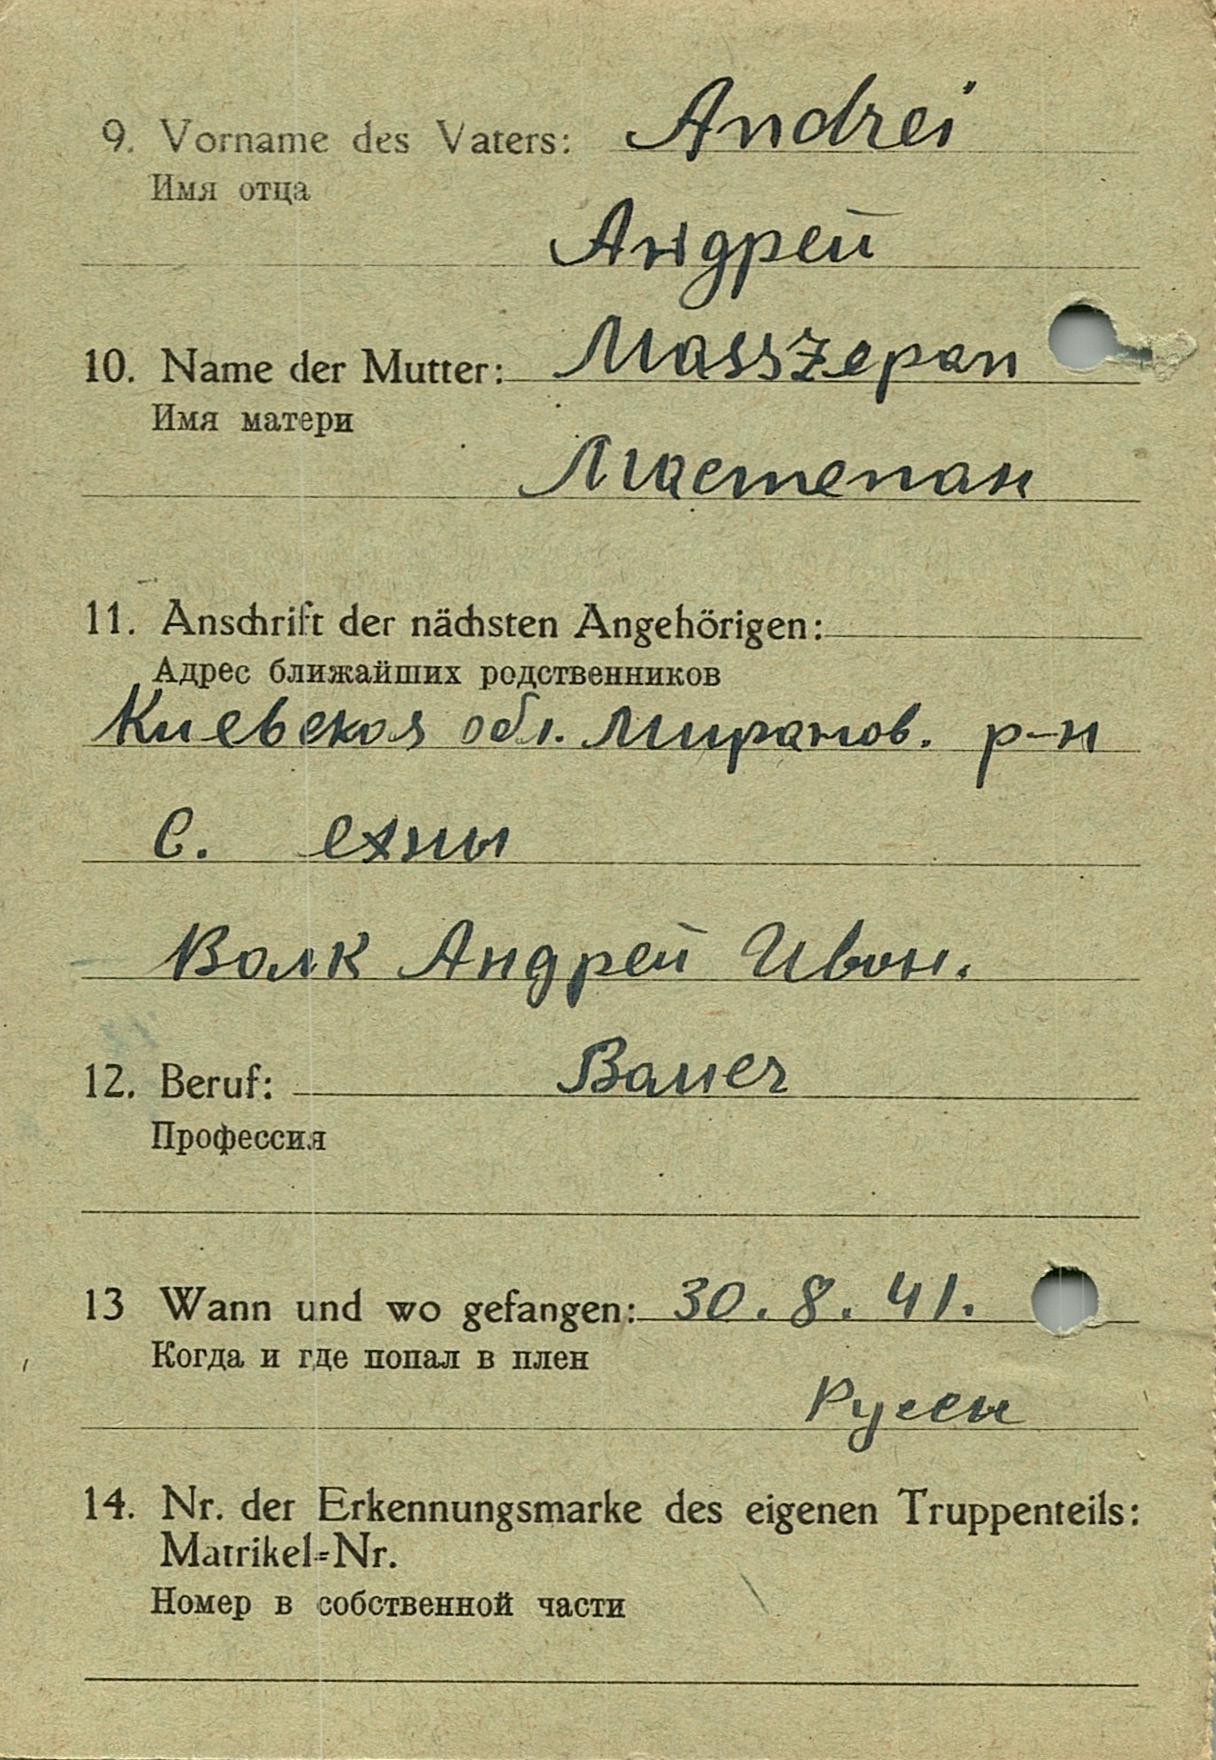 9. Vorname des Vaters: Andrei
Имя отца
Андрей
10. Name der Mutter: Masszepan
Имя матери
Мастепан
11. Anschrift der nächsten Angehörigen:
Адрес ближайших родственников
Киевская обл. Миранов. р-н
с. ехны
Волк Андрей Иван.
12. Beruf: Bauer
Профессия
13 Wann und wo gefangen: 30. 8. 41.
Когда и где попал в плен
14. Nr. der Erkennungsmarke des eigenen Truppenteils:
Matrikel=Nr.
Номер в собственной части